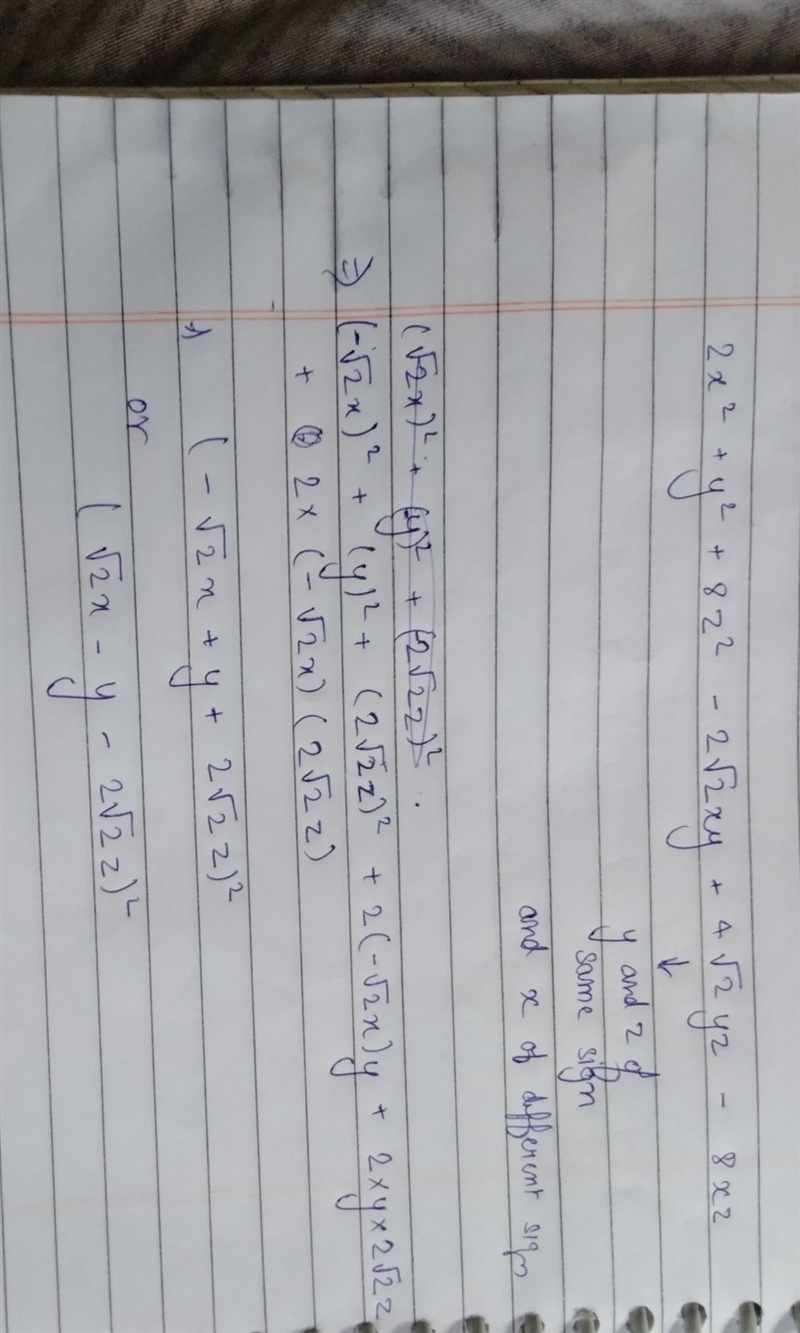 2x² + y² + 8z² - 2√2xy + 4√2yz - 8xz
↓
y and z of
same sign
and x of different sign
(√2x)² + (y)² + (2√2z)².
⇒ (-√2x)² + (y)² + (2√2z)² + 2(-√2x)y + 2×y×2√2z
+ 2×(-√2x)(2√2z)
⇒ (-√2x + y + 2√2z)²
or
(√2x - y - 2√2z)²